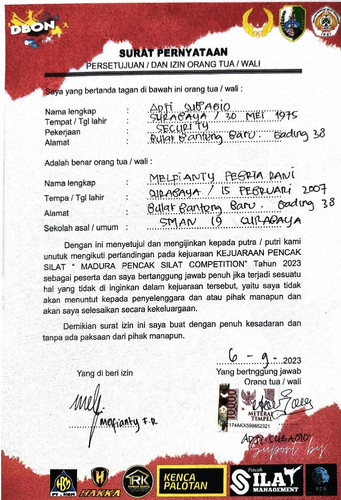 DBON
IPSI
SURAT PERNYATAAN
PERSETUJUAN / DAN IZIN ORANG TUA / WALI
Saya yang bertanda tagan di bawah ini orang tua / wali :
Nama lengkap : ADJI SUBAGIO
Tempat / Tgl lahir : SURABAYA / 30 MEI 1975
Pekerjaan : SECURITY
Alamat : Bulak Banteng Baru. Gading 38
Adalah benar orang tua / wali :
Nama lengkap : MELFIANTY FEBRIA RANI
Tempa / Tgl lahir : SURABAYA / 15 FEBRUARI 2007
Alamat : Bulak Banteng Baru. Gading 38
Sekolah asal / umum : SMAN 19 SURABAYA
Dengan ini menyetujui dan mengijinkan kepada putra / putri kami
unutuk mengikuti pertandingan pada kejuaraan KEJUARAAN PENCAK
SILAT " MADURA PENCAK SILAT COMPETITION" Tahun 2023
sebagai peserta dan saya bertanggung jawab penuh jika terjadi sesuatu
hal yang tidak di inginkan dalam kejuaraan tersebut, yaitu saya tidak
akan menuntut kepada penyelenggara dan atau pihak manapun dan
akan saya selesaikan secara kekeluargaan.
Demikian surat izin ini saya buat dengan penuh kesadaran dan
tanpa ada paksaan dari pihak manapun.
6 - 9 - 2023
Yang di beri izin
Yang bertngggung jawab
Orang tua / wali
10000
METERAI
TEMPEL
174AKX599852321
Melfianty F.R
ADJI SUBAGIO
Suport by
HBM
HAKKA
RK
KENCA
PALOTAN
Pencak
SILAT
MANAGEMENT